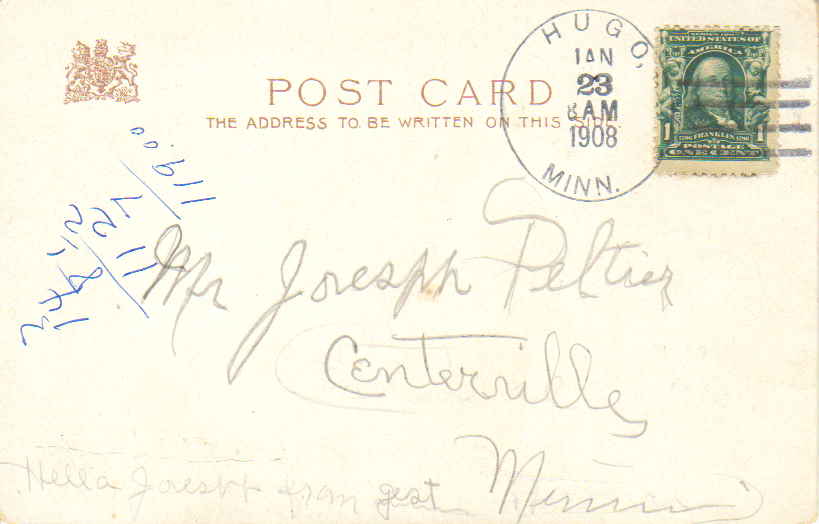 POST CARD
THE ADDRESS TO BE WRITTEN ON THIS SIDE
HUGO,
JAN
23
8 AM
1908
MINN.
SERIES 1902
UNITED STATES OF
AMERICA
1 FRANKLIN 1
POSTAGE
ONE CENT
119.00
Mr Joresph Peltier
Centerville
Minn
Hella Joresph